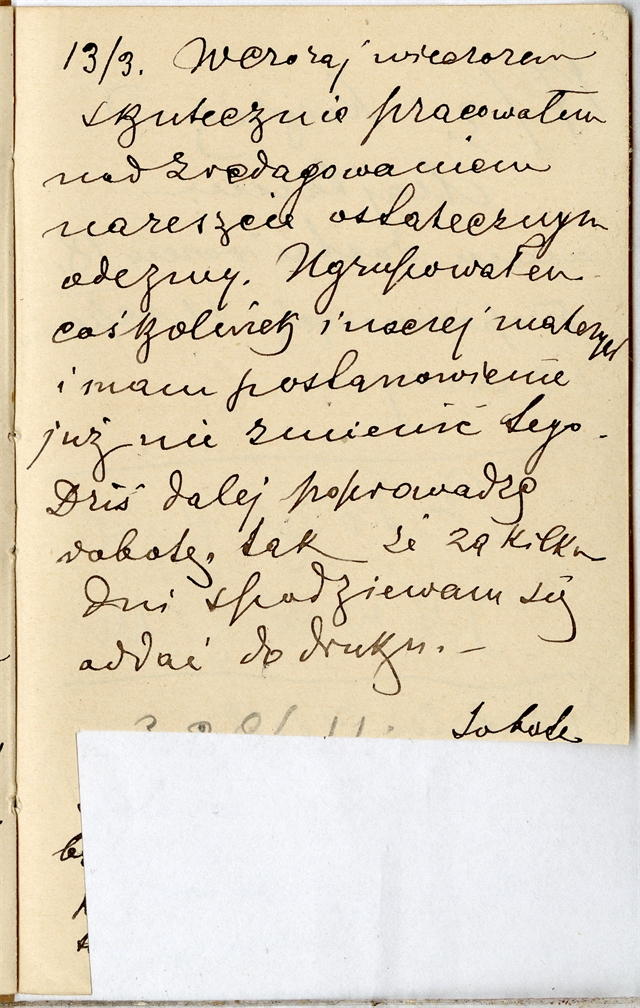 13/3. Wczoraj wieczorem
skutecznie pracowałem
nad zredagowaniem
nareszcie ostatecznym
odezwy. Ugrupowałem
cośkolwiek inaczej materyał
i mam postanowienie
już nie zmienić tego.
Dziś dalej poprowadzę
robotę, tak że za kilka
dni spodziewam się
oddać do druku. –
Sobota